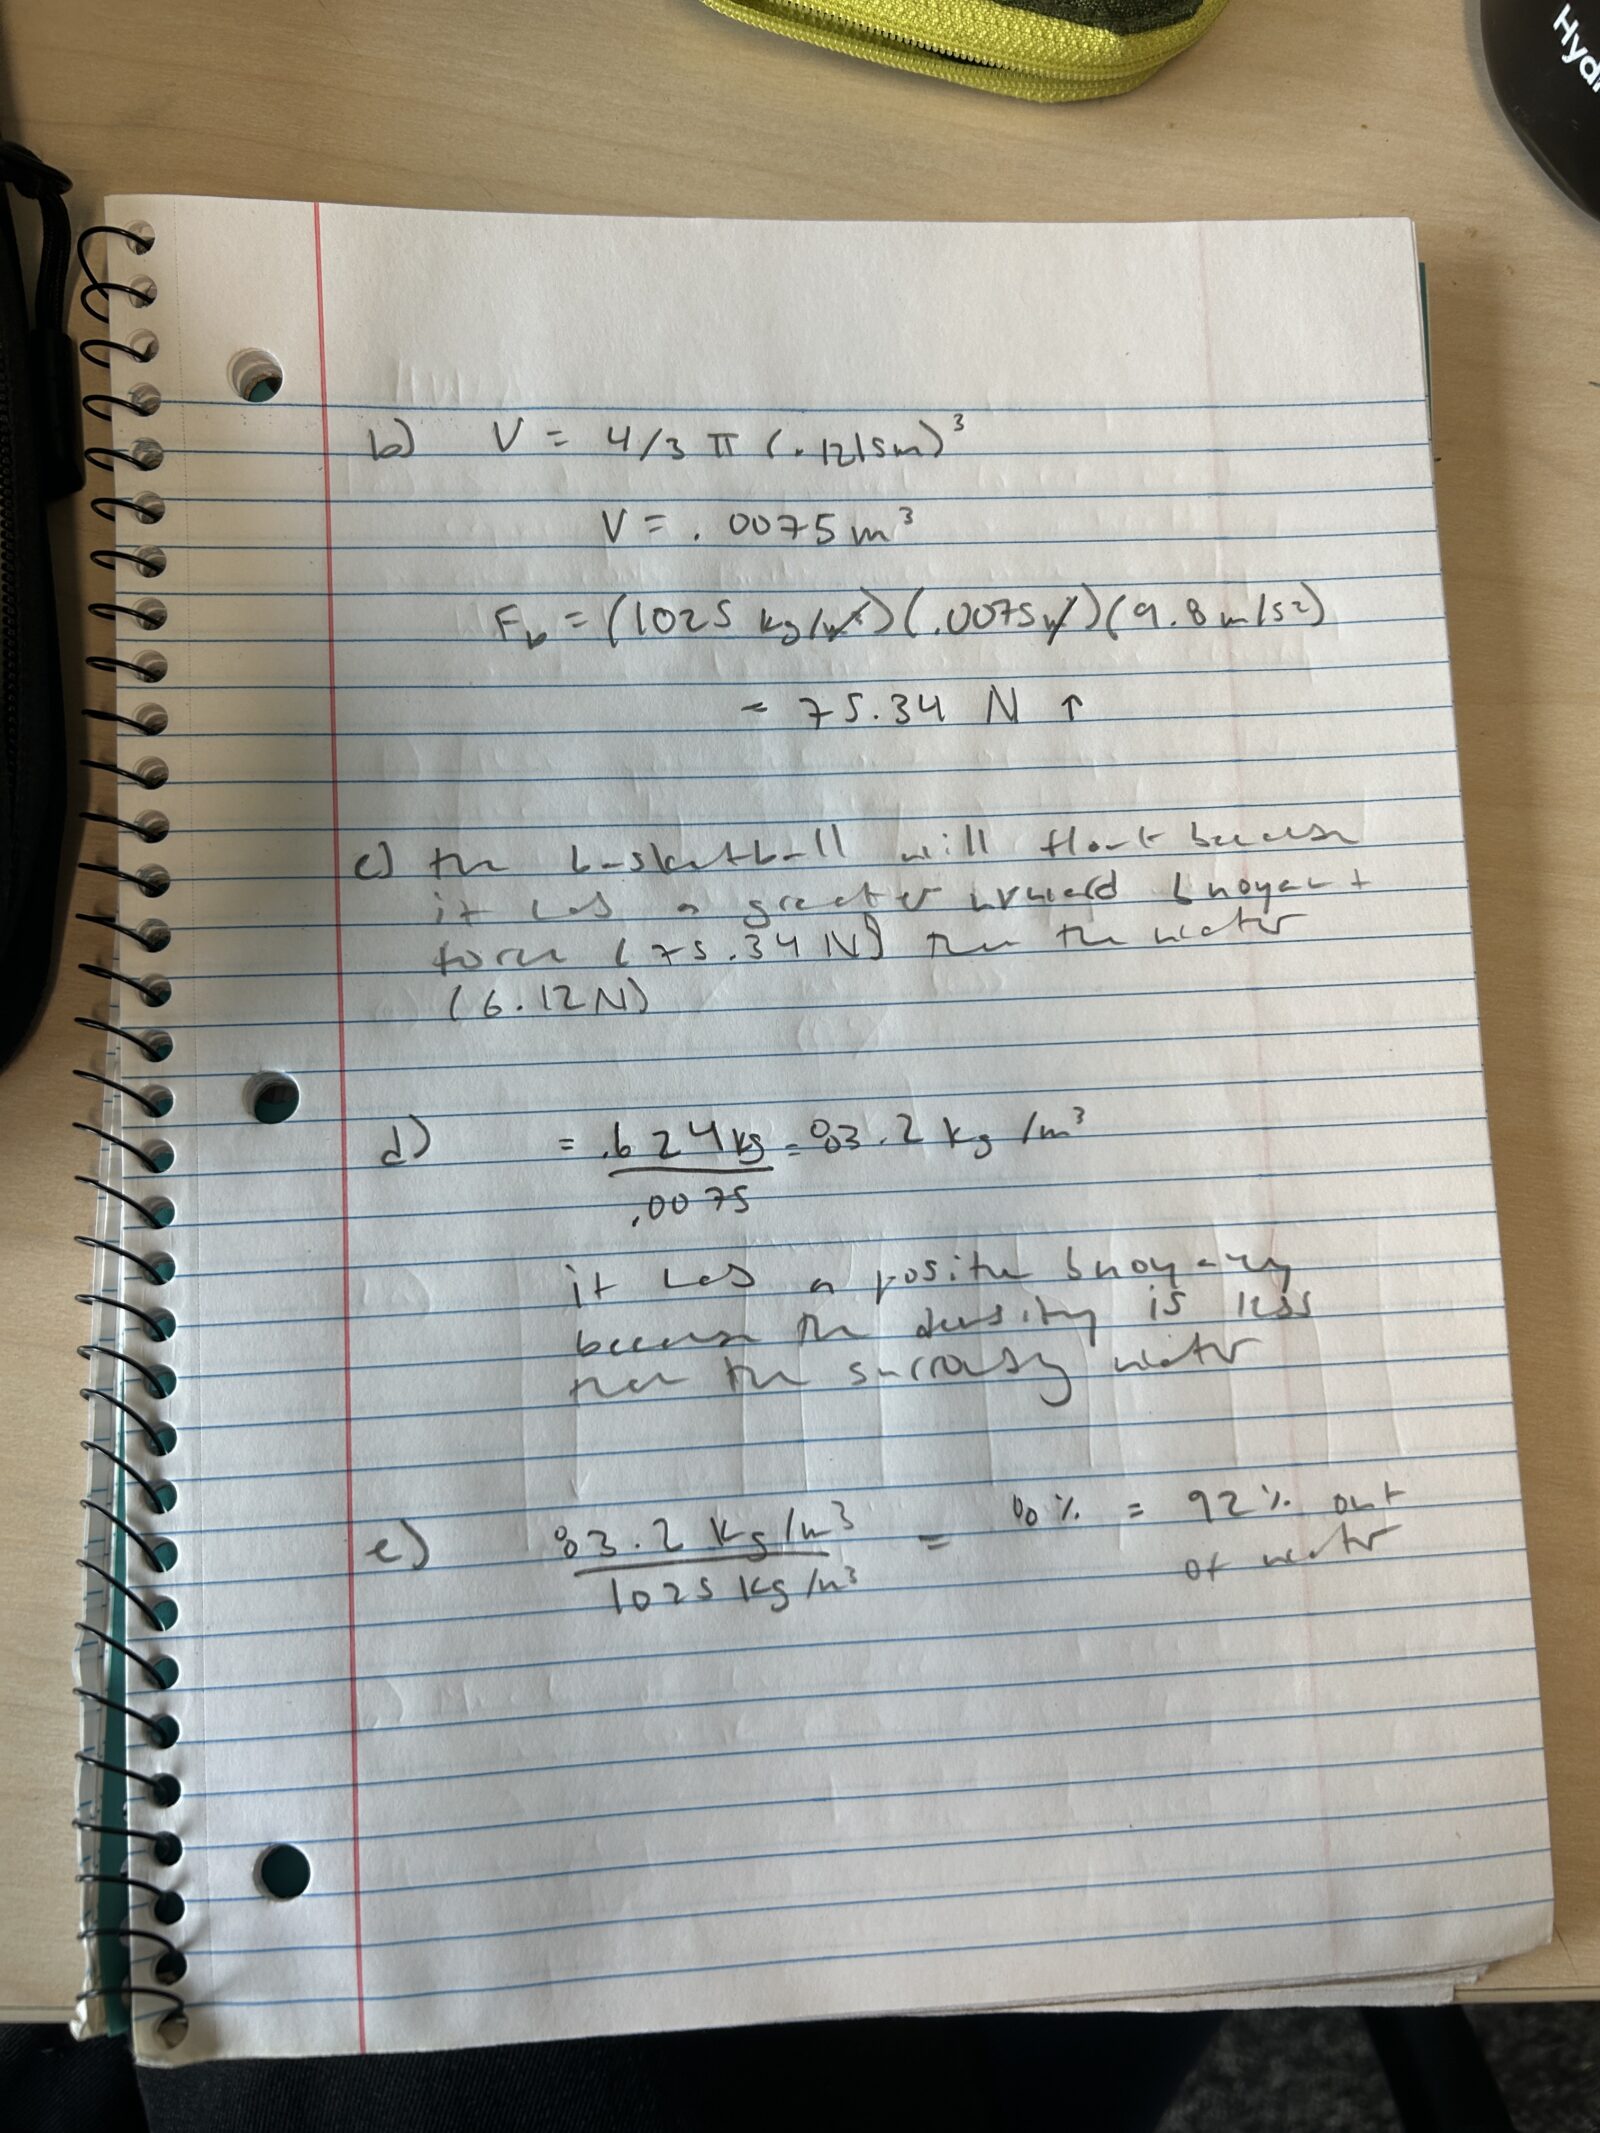 Hyd
b) V = 4/3 π (.1215m)³
V = .0075 m³
F_b = (1025 kg/m³)(.0075m³)(9.8 m/s²)
= 75.34 N ↑
c) the basketball will float because
it has a greater upward buoyant
force (75.34 N) then the water
(6.12N)
d) = .624kg = 83.2 kg/m³
.0075
it has a positive buoyancy
because the density is less
then the surrounding water
e) 83.2 kg/m³ = 8% = 92% out
1025 kg/m³ of water